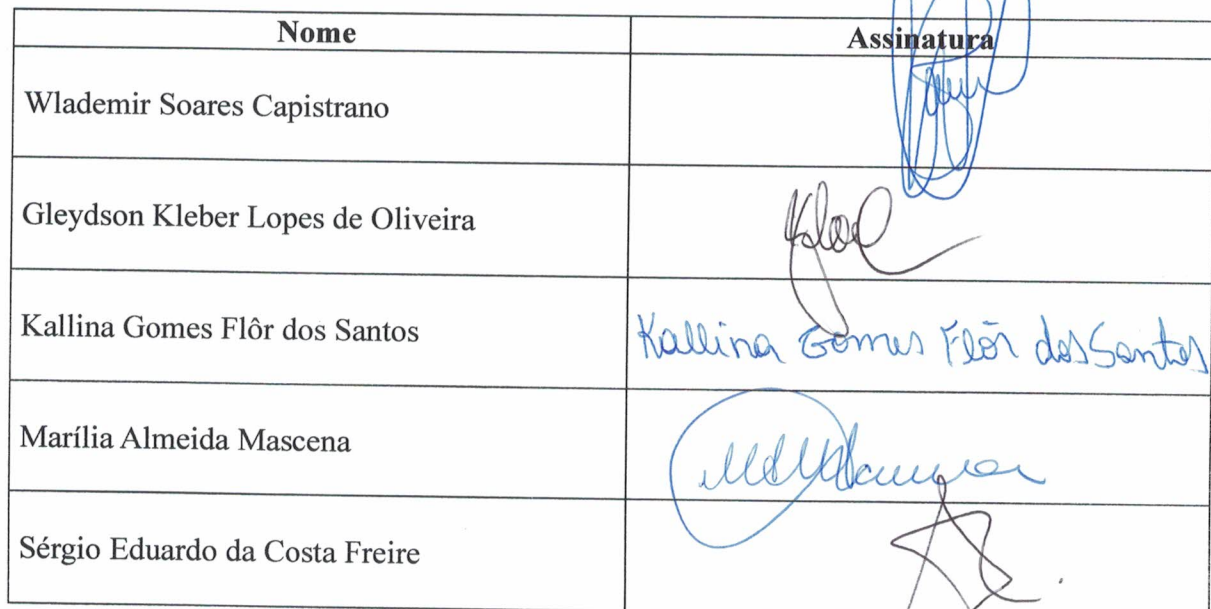 Nome Assinatura
Wlademir Soares Capistrano
Gleydson Kleber Lopes de Oliveira
Kallina Gomes Flôr dos Santos Kallina Gomes Flôr dos Santos
Marília Almeida Mascena
Sérgio Eduardo da Costa Freire